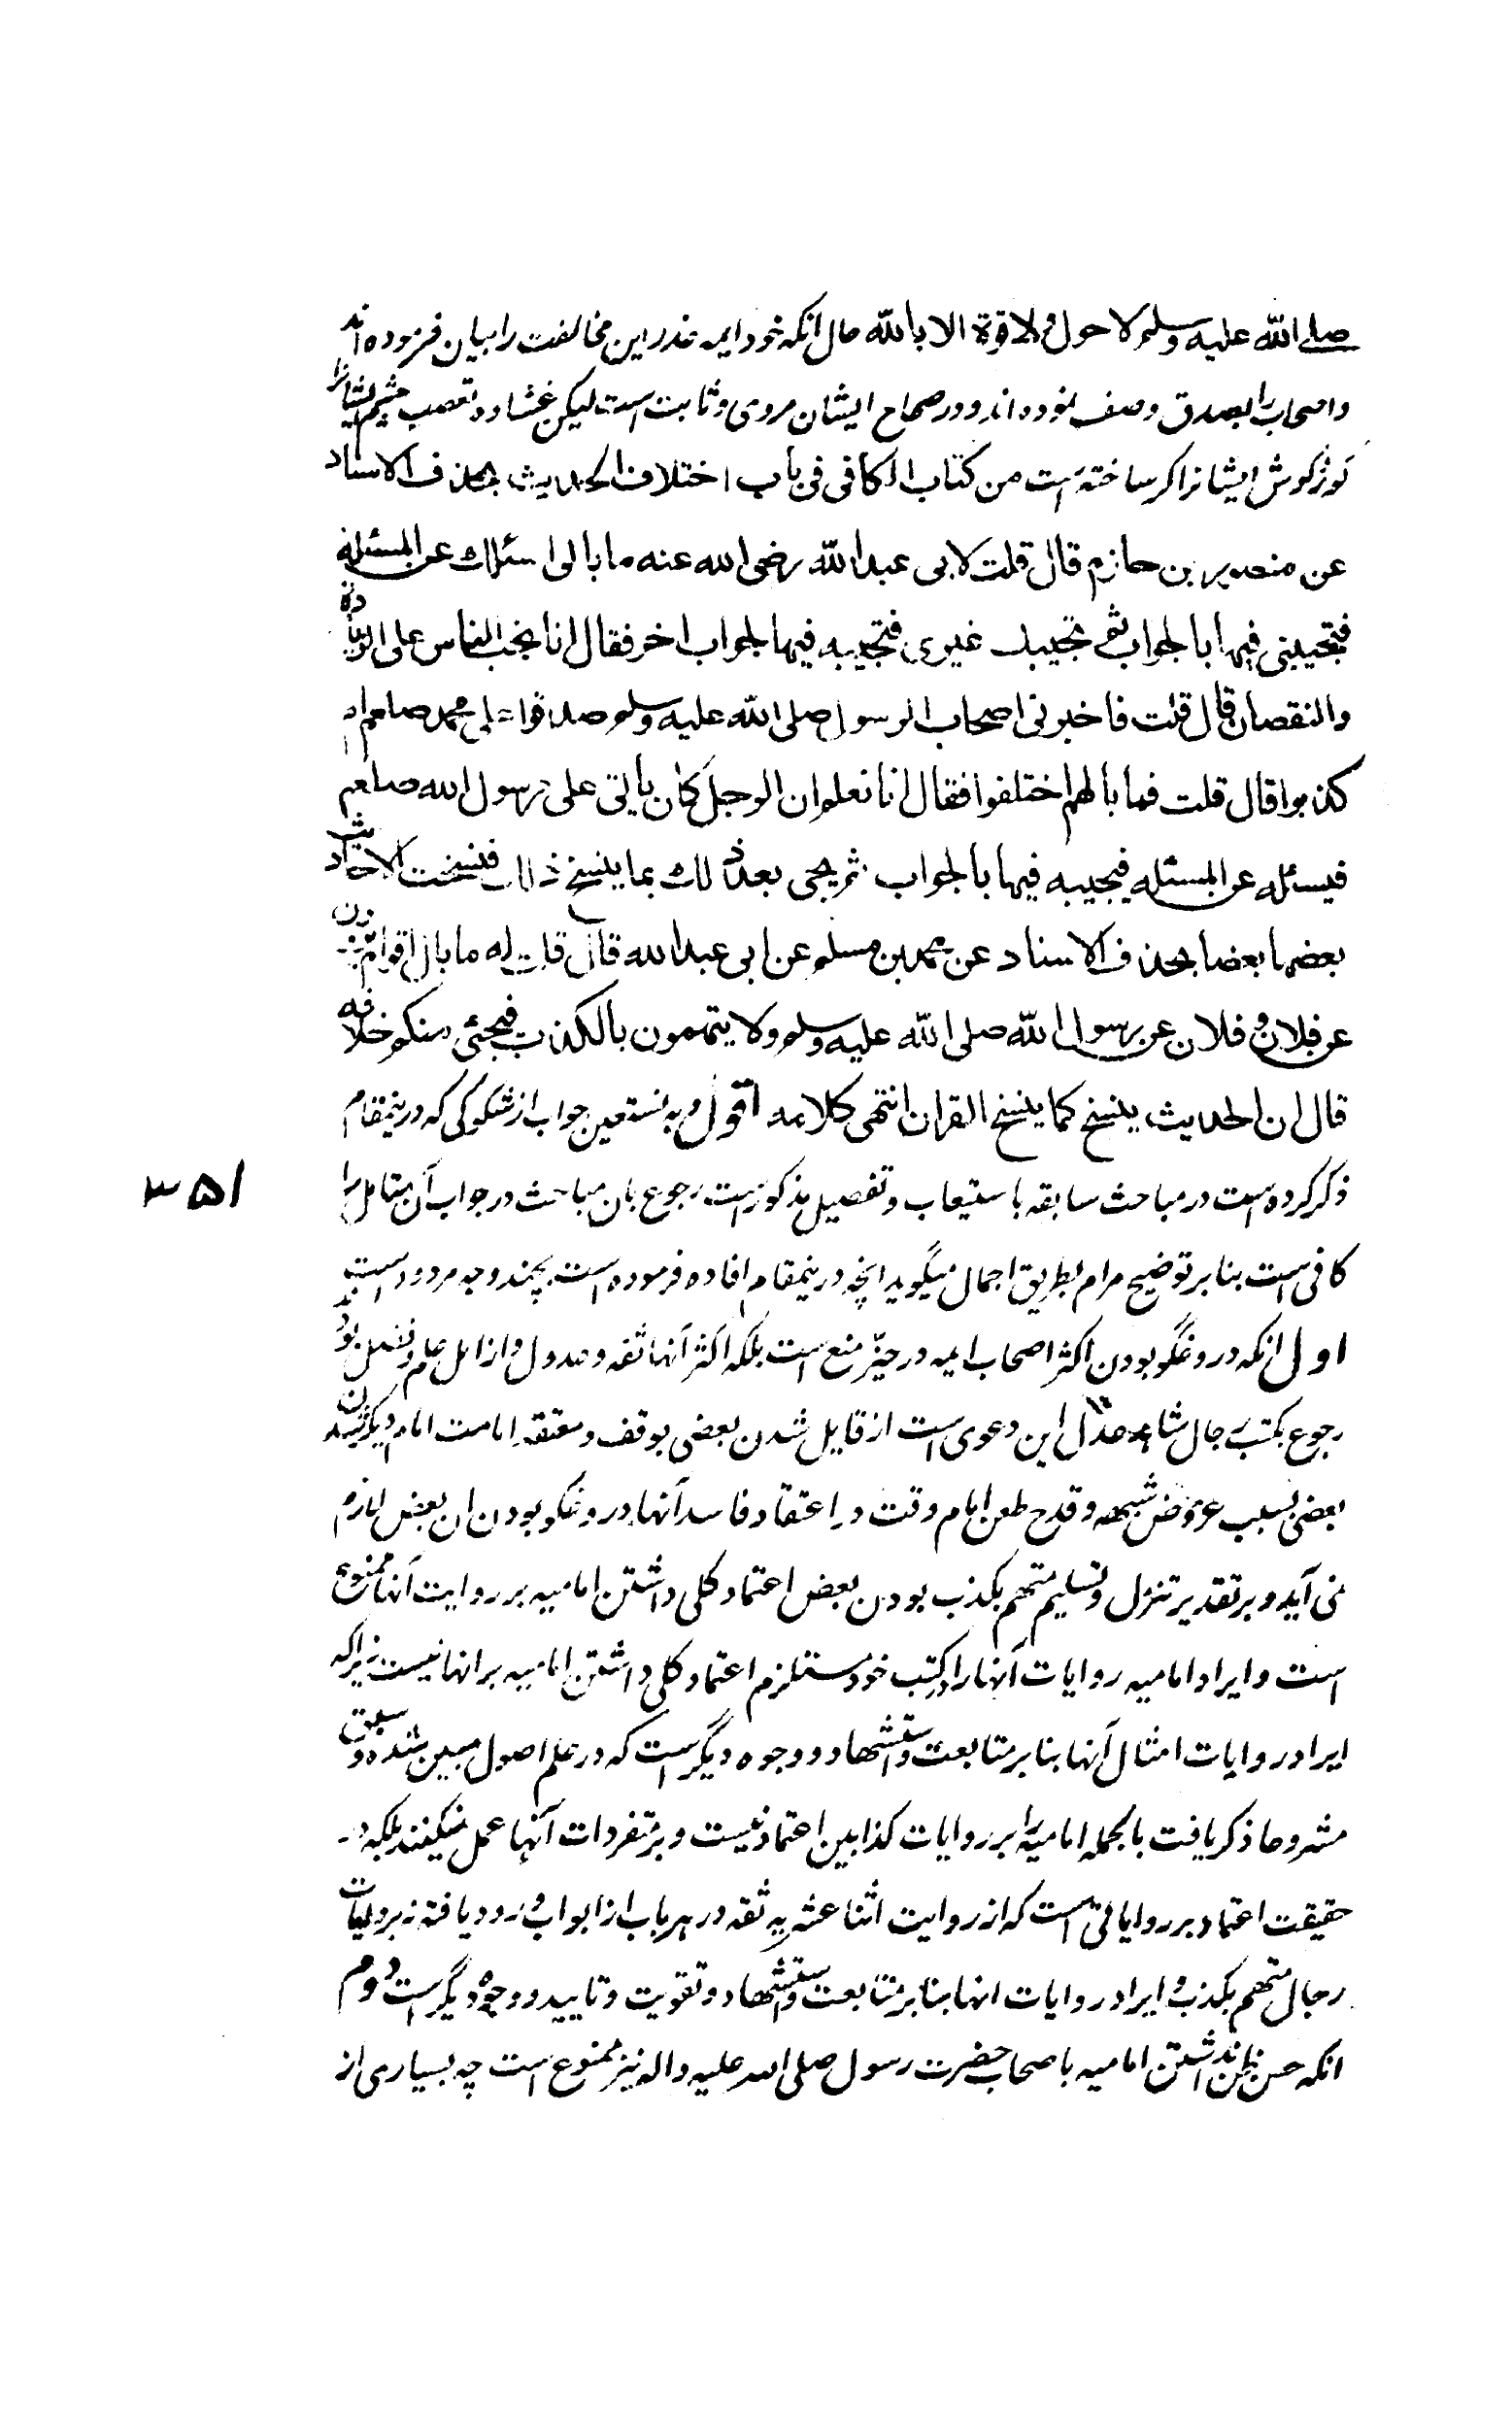 صلے الله علیه وسلم لا حول ولا قوة الا بالله حال انکه خود ایمه عذر این مخالفت را بیان فرموده اند
و اصحاب را بصدق وصف نموده اند و در صحاح ایشان مروی و ثابت است لیکن غشاوه تعصب چشم ایشانرا
کور و گوش ایشانرا کر ساخته است من کتاب الکافی فی باب اختلاف الحدیث بحذف الاسناد
عن منصور بن حازم قال قلت لابی عبد الله رضی الله عنه ما بالی اسئلک عن المسئلة
فتجیبنی فیها بالجواب ثم یجیبک غیری فتجیبه فیها بجواب اخر فقال انا نجیب الناس علی الزیادة
والنقصان قال قلت فاخبرنی اصحاب الرسول صلی الله علیه وسلم صدقوا علی محمد صلعم ام
کذبوا قال قلت فما بالهم اختلفوا فقال انا نعلم ان الرجل کان یأتی علی رسول الله صلعم
فیسئله عن المسئله فیجیبه فیها بالجواب ثم یجی بعد ذلک بما ینسخ ذلک فنسخت الاحادیث
بعضها بعضا بحذف الاسناد عن محمد بن مسلم عن ابی عبد الله قال قلت له ما بال اقوام یروون
عن فلان و فلان عن رسول الله صلی الله علیه وسلم ولا یتهمون بالکذب فیجئی منکم خلافه
قال ان الحدیث ینسخ کما ینسخ القران انتهی کلامه اقول و به نستعین جواب از شکوکی که درینمقام
ذکر کرده است در مباحث سابقه باستیعاب و تفصیل مذکور است رجوع بان مباحث در جواب آن متامل را
۳۵۱
کافی است بنابر توضیح مرام بطریق اجمال میگوید انچه درینمقام افاده فرموده است بچند وجه مردود است
اول انکه دروغگو بودن اکثر اصحاب ایمه در حیّز منع است بلکه اکثر آنها ثقه و عدول و از اهل علم و فضل بودند
رجوع بکتب رجال شاهد عدل این دعوی است از قایل شدن بعضی بوقف و معتقد امامت امام دیگر شدن
بعضی بسبب عروض شبهه و قدح طعن امام وقت در اعتقاد فاسد آنها دروغگو بودن ان بعض لازم
نمی آید و بر تقدیر تنزل و تسلیم متهم بکذب بودن بعض اعتماد کلی داشتن امامیه بر روایت آنها ممنوع
است و ایراد امامیه روایات آنها را در کتب خود مستلزم اعتماد کلی داشتن امامیه برانها نیست زیرا که
ایراد روایات امثال آنها بنابر متابعت و استشهاد و وجوه دیگر است که در علم اصول مبین شده و سبق
مشروحا ذکر یافت بالجمله امامیه را بر روایات کذابین اعتماد نیست و بر متفردات آنها عمل نمیکنند بلکه در
حقیقت اعتماد بر روایاتی است که از روایت اثنا عشریه ثقه در هر باب از ابواب ورود یافته نه بر روایات
رجال متهم بکذب و ایراد روایات انها بنابر متابعت و استشهاد و تقویت و تایید و وجوه دیگر است دوم
انکه حسن ظن نداشتن امامیه باصحاب حضرت رسول صلی الله علیه واله نیز ممنوع است چه بسیاری از